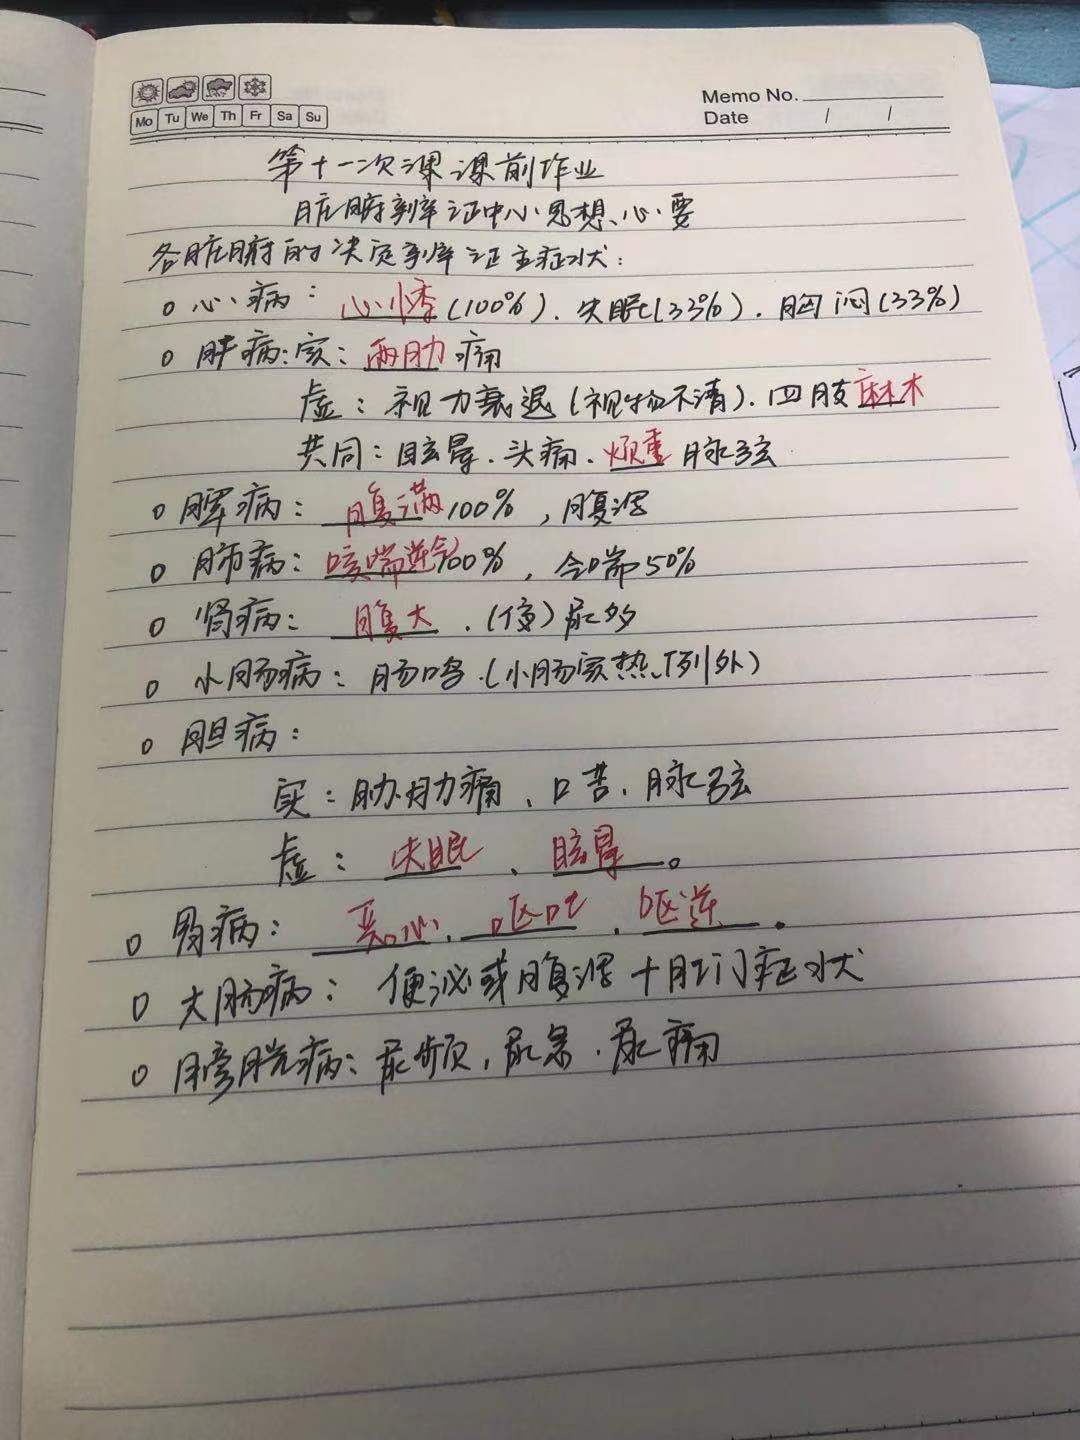 Mo Tu We Th Fr Sa Su
Memo No.
Date / /
第十一次课课前作业
脏腑辨证中心思想、心要
各脏腑的决定辨证主症状：
心病：心悸(100%)．失眠(33%)．胸闷(33%)
肝病：实：两肋痛
虚：视力衰退(视物不清)．四肢麻木
共同：眩晕．头痛．烦重 脉弦
脾病：腹满100%，腹泻
肺病：咳喘逆气100%，气喘50%
肾病：腹大．(夜)尿多
小肠病：肠鸣.(小肠实热下列外)
胆病：
实：胁肋痛、口苦．脉弦
虚：失眠、眩晕。
胃病：恶心、呕吐．呕逆．
大肠病：便泌或腹泻十肛门症状
膀胱病：尿频，尿急．尿痛